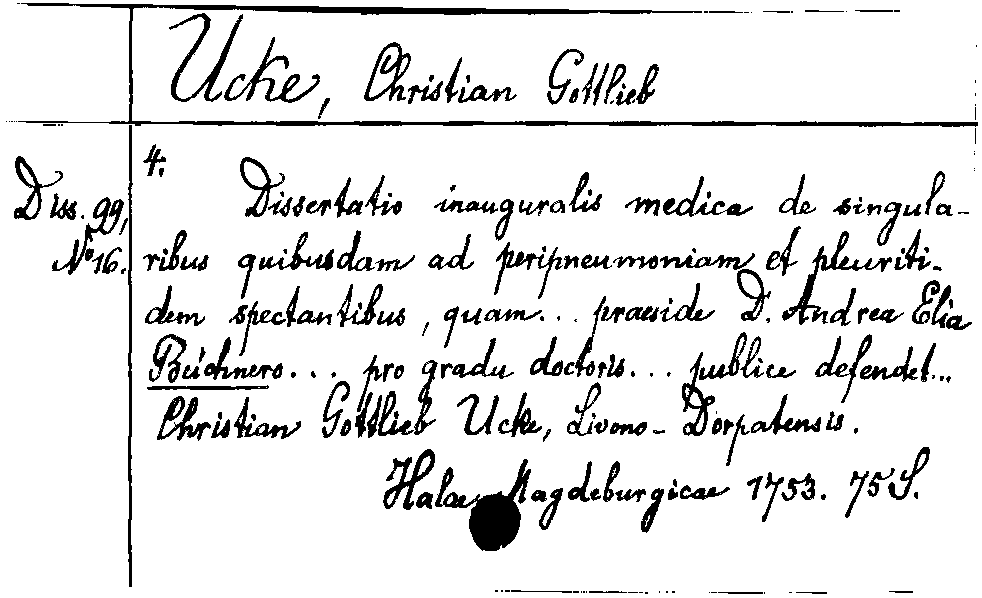 Ucke, Christian Gottlieb
4.
Diss. 99,
No 16.
Dissertatio inauguralis medica de singula-
ribus quibusdam ad peripneumoniam et pleuriti-
dem spectantibus, quam... praeside D. Andrea Elia
Büchnero... pro gradu doctoris... publice defendet...
Christian Gottlieb Ucke, Livono-Dorpatensis.
Halae Magdeburgicae 1753. 75 S.